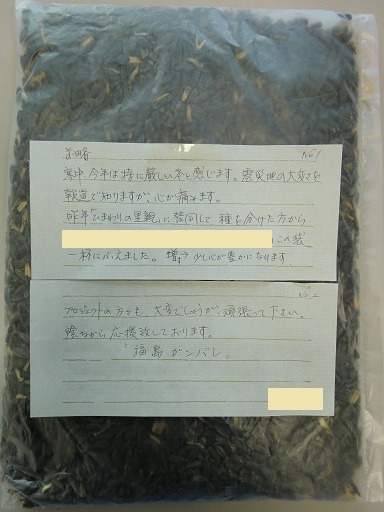 前略 No.1
寒中、今年は特に厳しい冬と感じます。震災地の大変さを
報道で知りますが、心が痛みます。
昨年「ひまわりの里親」に賛同して、種を分けた方から
この袋
一杯にふえました。 少し心が豊かになります。
No.2
プロジェクトの方々も、大変でしょうが、頑張って下さい。
陰ながら応援致しております。
福島ガンバレ